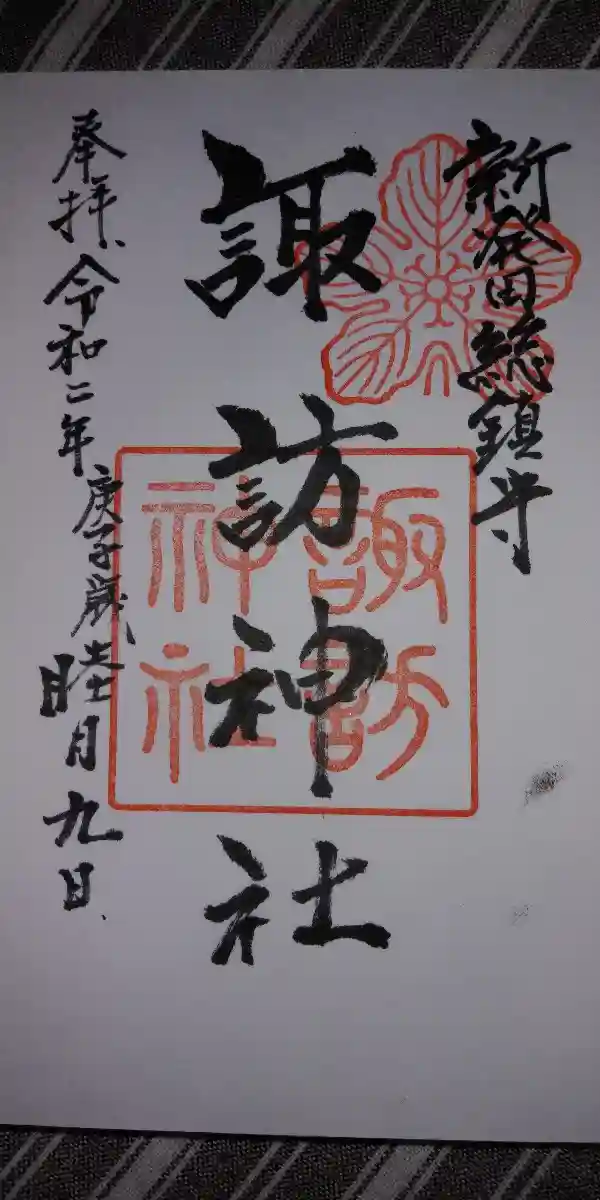 新発田総鎮守
諏訪神社
諏訪
神社
奉拝、令和二年
庚子歳睦月九日